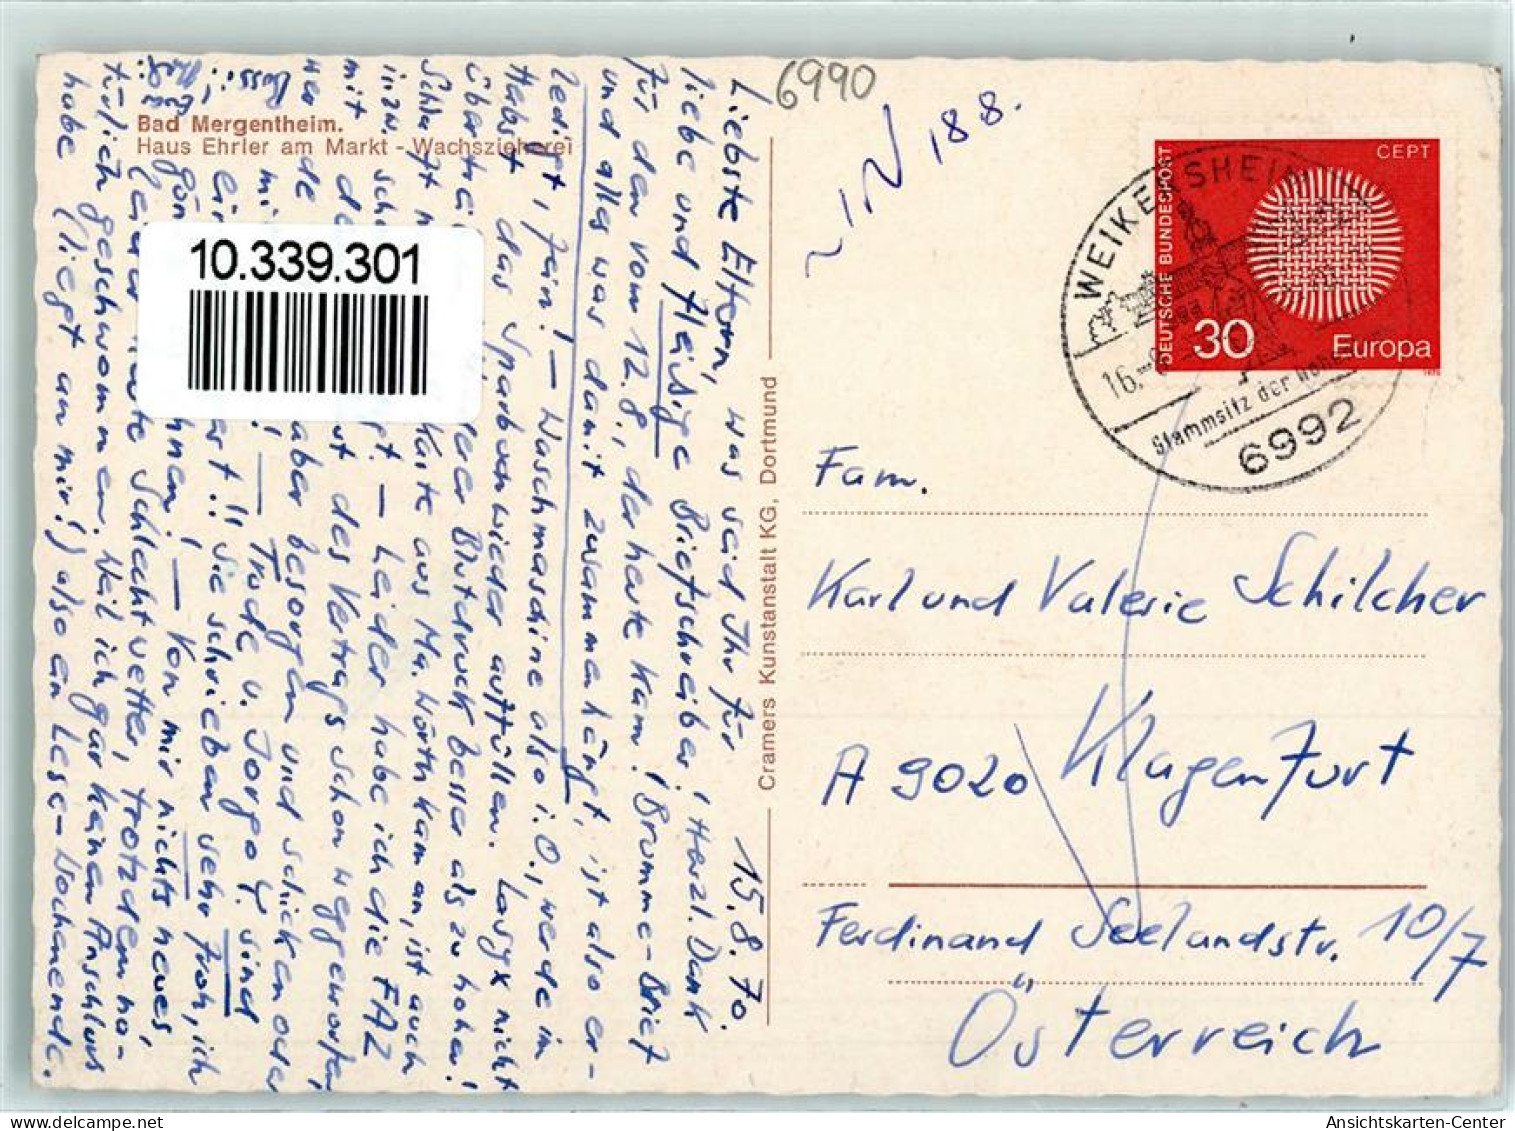 6990
18.8.
Bad Mergentheim.
Haus Ehrler am Markt - Wachszieherei
10.339.301
15.8.70.
Liebste Eltern, was seid Ihr für
liebe und fleißige Briefschreiber! Herzl. Dank
für den vom 12.8., der heute kam! Brumme-Brief
und alles was damit zusammenhängt, ist also er-
ledigt, fein! — Waschmaschine also i.O., werde im
Herbst das Sparbuch wieder auffüllen. Lasyx nicht
Blutdruck besser als zu hoher!
Karte aus Ma. Wörth kam an, ist auch
— Leider habe ich die FAZ
mit de des Vertrags schon weggeworfen,
werde aber besorgen und schicken oder
— Trude u. Jorgo sind
!! Sie schrieben sehr froh, ich
gön hnen! — Von mir nichts neues,
leider heute Schlechtwetter, trotzdem na-
türlich geschwommen. Weil ich gar keinen Anschluss
habe (liegt an mir!) also ein Lese-Wochenende.
Cramers Kunstanstalt KG, Dortmund
DEUTSCHE BUNDESPOST
CEPT
30
Europa
WEIKERSHEIM
16.
Stammsitz der Hohen
6992
Fam.
Karl und Valerie Schilcher
A 9020 Klagenfurt
Ferdinand Seelandstr. 10/7
Österreich
Ansichtskarten-Center